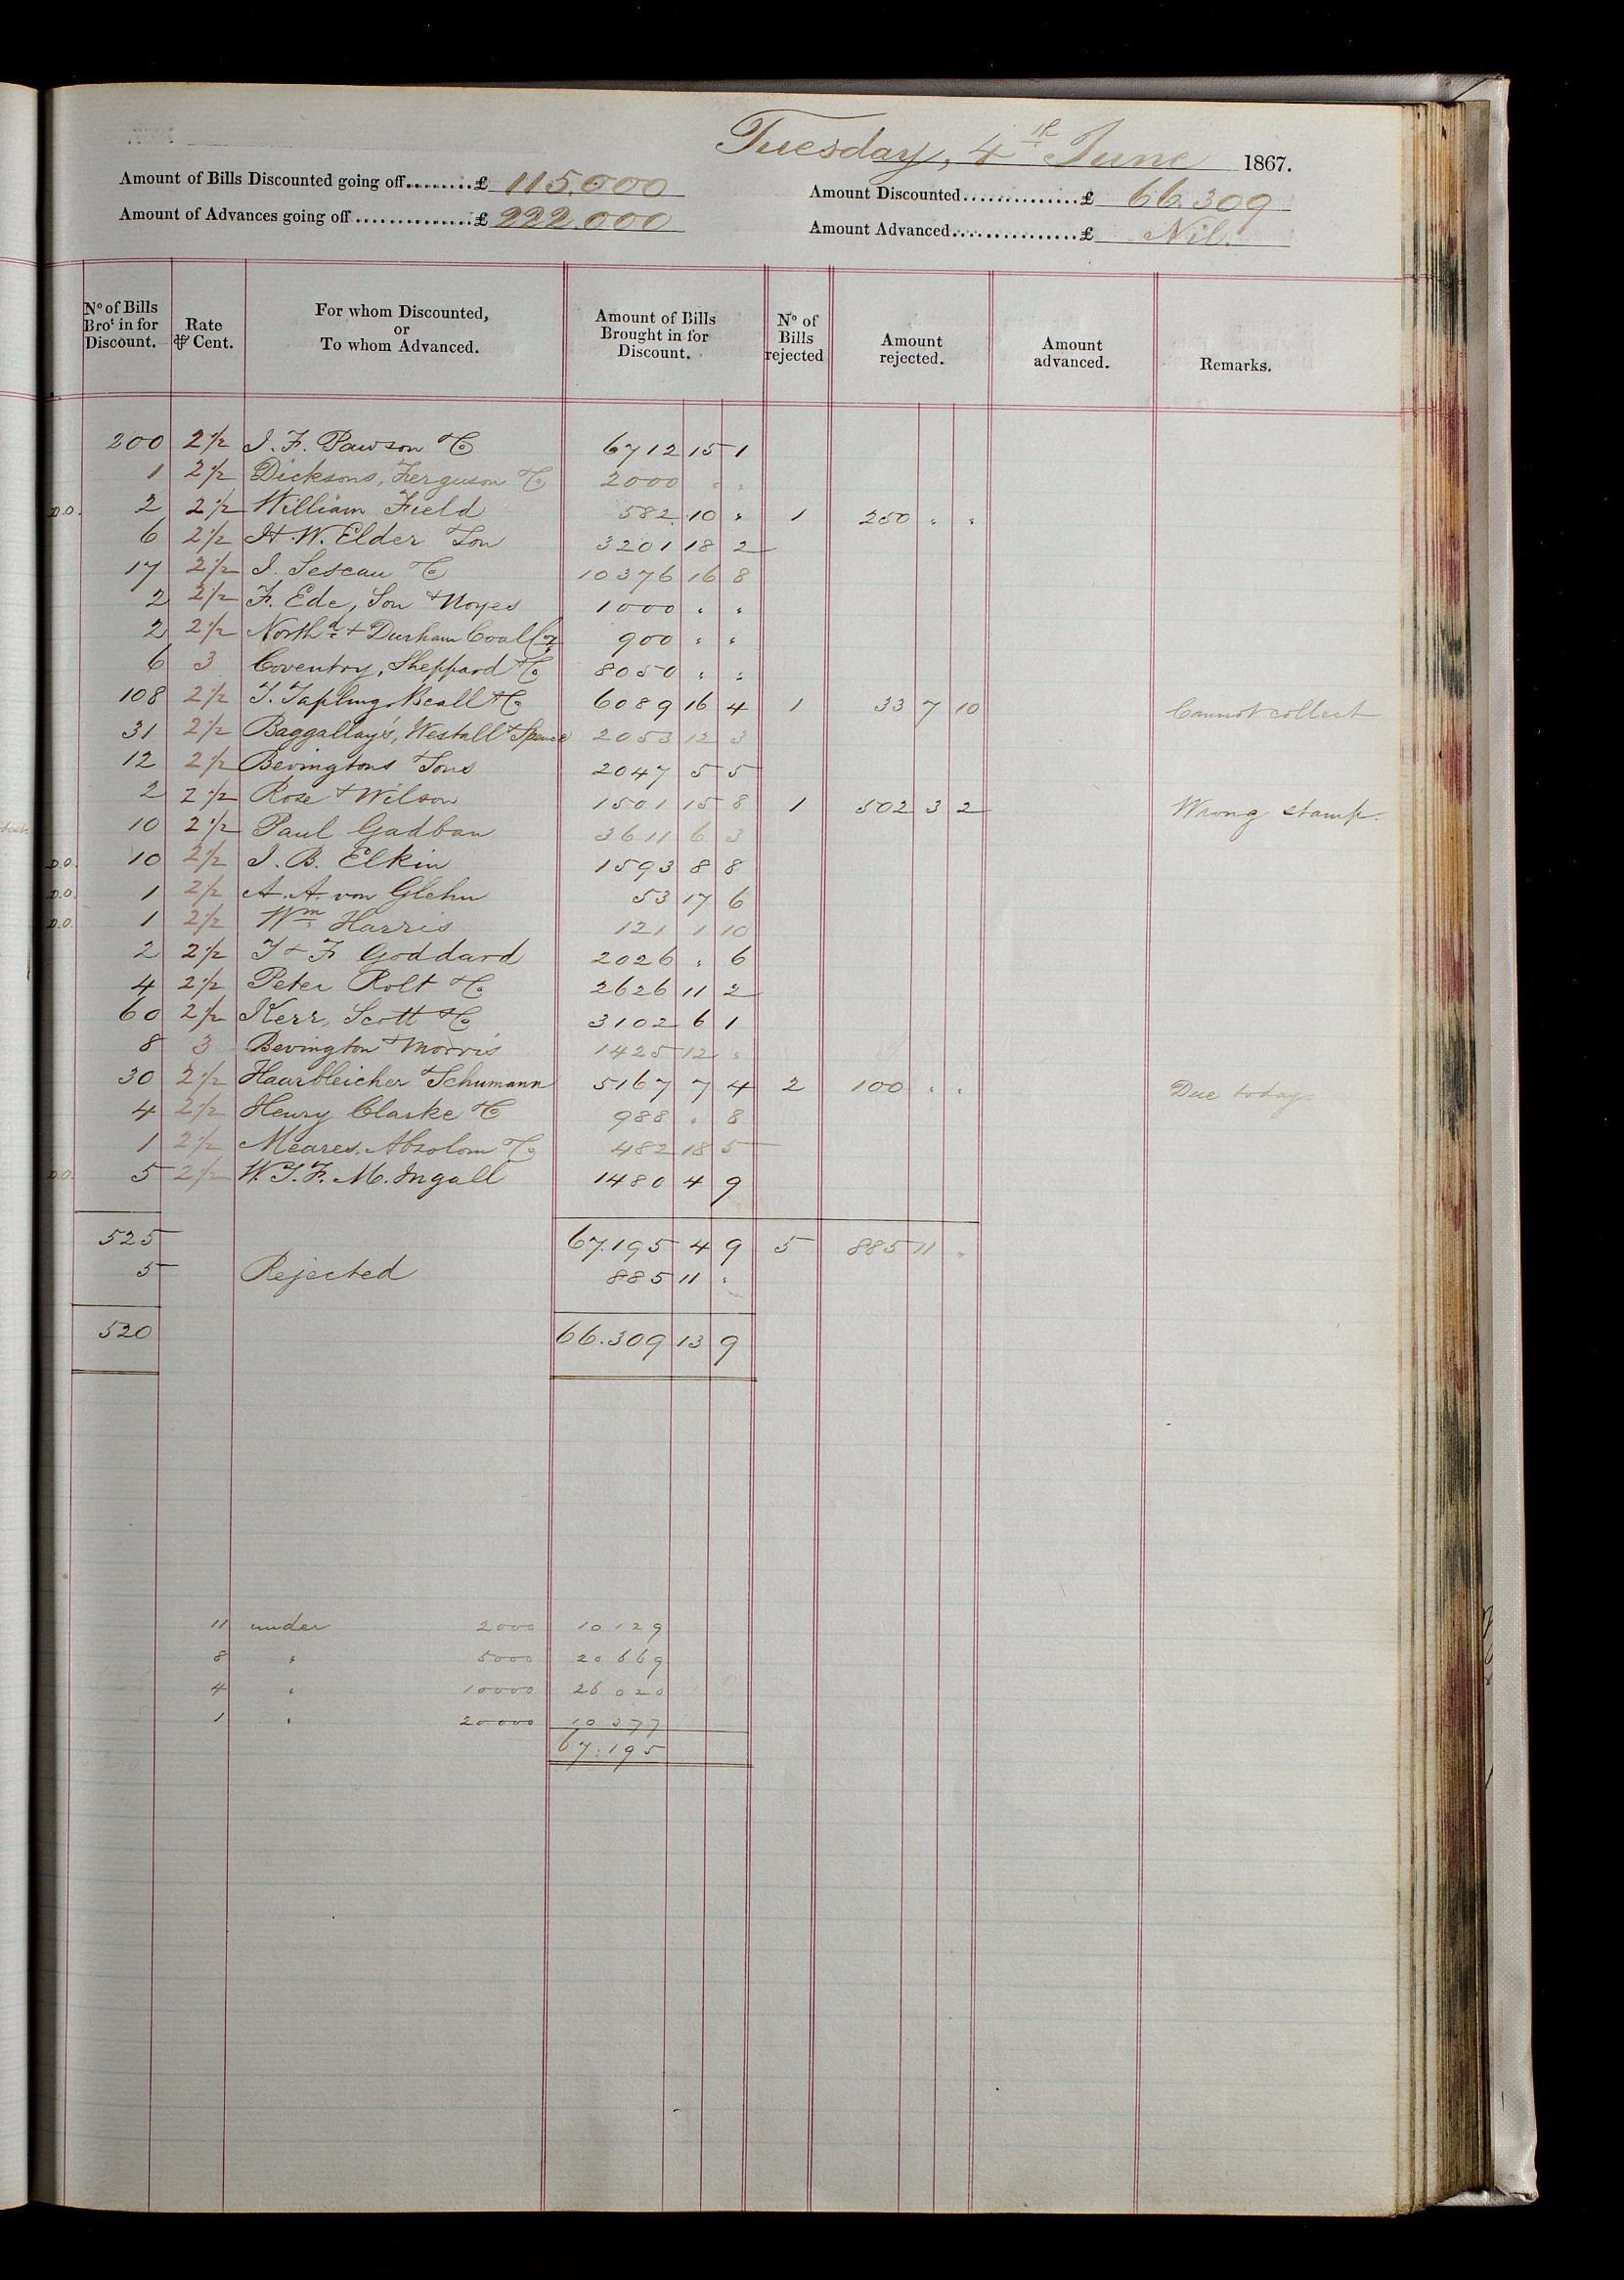 Tuesday, 4th June 1867.
Amount of Bills Discounted going off........£ 115.000
Amount Discounted..............£ 66.309
Amount of Advances going off..............£ 222.000
Amount Advanced................£ Nil.
No of Bills Brot in for Discount. Rate ₱ Cent. For whom Discounted, or To whom Advanced. Amount of Bills Brought in for Discount. No of Bills rejected Amount rejected. Amount advanced. Remarks.
200 2½ J. F. Pawson & Co 6712 15 1
1 2½ Dicksons, Ferguson & Co 2000 " "
D.O. 2 2½ William Field 582 10 " 1 250 " "
6 2½ H. W. Elder & Son 3201 18 2
17 2½ J. Lescau & Co 10376 16 8
2 2½ F. Ede, Son & Noyes 1000 " "
2 2½ Northd & Durham Coal Co 900 " "
6 3 Coventry, Sheppard & Co 8050 " "
108 2½ T. Tapling, Beall & Co 6089 16 4 1 33 7 10 Cannot collect
31 2½ Baggallay's, Westall & Spence 2053 12 3
12 2½ Bevingtons & Sons 2047 5 5
2 2½ Rose & Wilson 1501 15 8 1 502 3 2 Wrong stamp.
10 2½ Paul Gadban 3611 6 3
D.O. 10 2½ J. B. Elkin 1593 8 8
D.O. 1 2½ A. A. von Glehn 53 17 6
D.O. 1 2½ Wm Harris 121 1 10
2 2½ T & F Goddard 2026 " 6
4 2½ Peter Rolt & Co 2626 11 2
60 2½ Kerr, Scott & Co 3102 6 1
8 3 Bevington & Morris 1425 12 "
30 2½ Haarbleicher & Schumann 5167 7 4 2 100 " " Due today.
4 2½ Henry Clarke & Co 988 " 8
1 2½ Meares, Absolom & Co 482 18 5
D.O. 5 2½ W. T. F. M. Ingall 1480 4 9
525 67.195 4 9 5 885 11 "
5 Rejected 885 11 "
520 66.309 13 9
11 under 2000 10 129
8 " 5000 20 669
4 " 10000 26 020
1 " 20.000 10 377
67.195